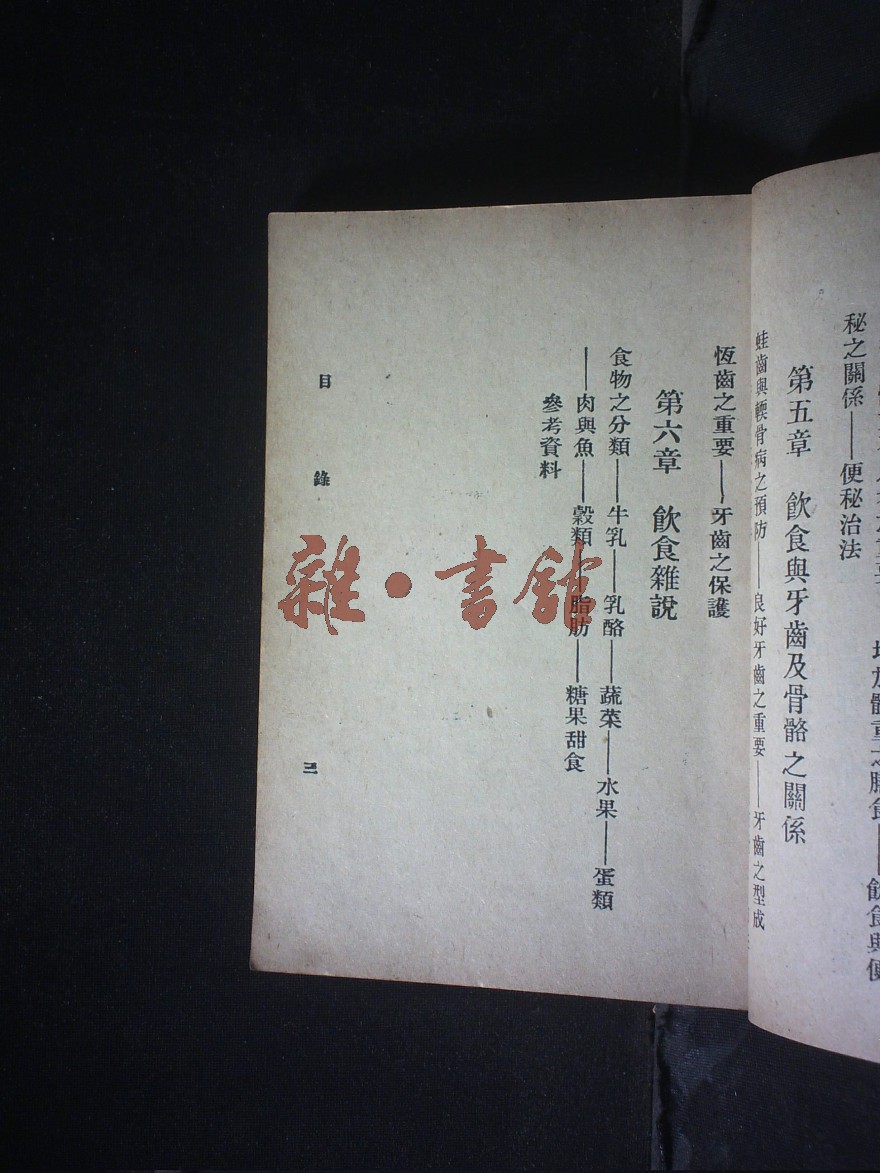 增加體重之膳食——飲食與便
秘之關係——便秘治法
第五章 飲食與牙齒及骨骼之關係
蛀齒與輭骨病之預防——良好牙齒之重要——牙齒之型成
恆齒之重要——牙齒之保護
第六章 飲食雜說
食物之分類——牛乳——乳酪——蔬菜——水果——蛋類
——肉與魚——穀類——脂肪——糖果甜食
參考資料
目錄
三
雜·書館